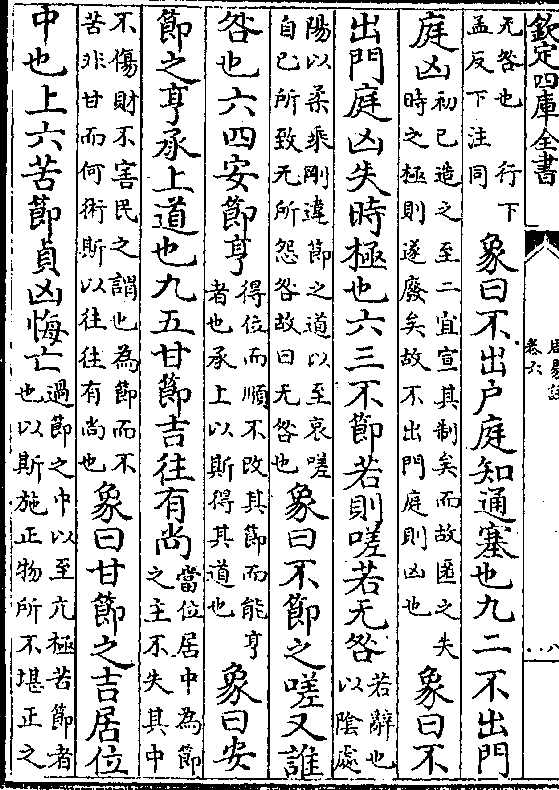 欽定四庫全書
周易註
卷六
八
无咎也　行下
孟反下注同
象曰不出户庭知通塞也九二不出門
庭凶
初已造之至二宜宣其制矣而故匿之失
時之極則遂廢矣故不出門庭則凶也
象曰不
出門庭凶失時極也六三不節若則嗟若无咎
若辭也
以陰處
陽以柔乘剛違節之道以至哀嗟
自已所致无所怨咎故曰无咎也
象曰不節之嗟又誰
咎也六四安節亨
得位而順不改其節而能亨
者也承上以斯得其道也
象曰安
節之亨承上道也九五甘節吉往有尚
當位居中為節
之主不失其中
不傷財不害民之謂也為節而不
苦非甘而何術斯以往往有尚也
象曰甘節之吉居位
中也上六苦節貞凶悔亡
過節之中以至亢極苦節者
也以斯施正物所不堪正之